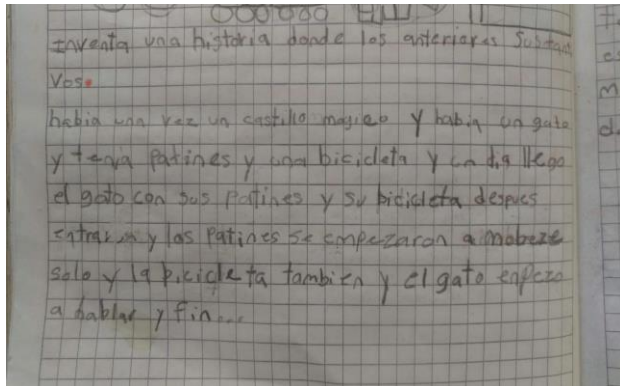 Inventa una historia donde los anteriores Sustan
Vos.
habia una vez un castillo magico y habia un gato
y tenia patines y una bicicleta y un dia llego
el gato con sus patines y su bicicleta despues
entraron y los patines se empezaron a mobeze
solo y la bicicleta tambien y el gato enpezo
a hablar y fin...